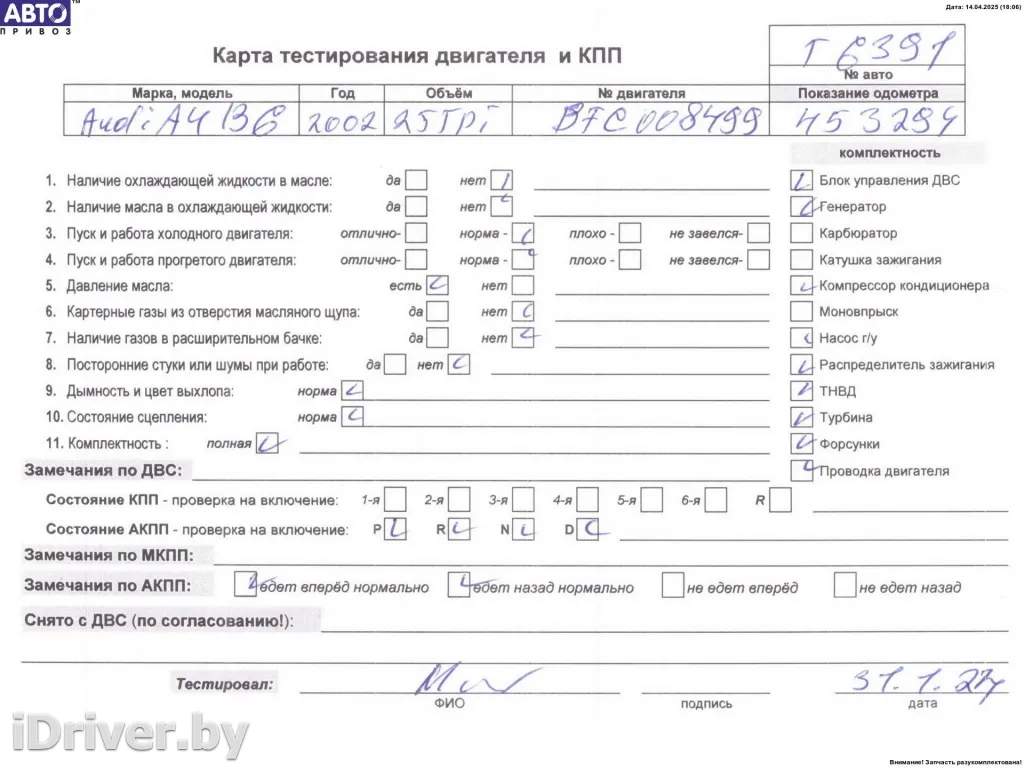 АВТО™
ПРИВОЗ
Дата: 14.04.2025 (18:06)
Карта тестирования двигателя и КПП
T6391
№ авто
Марка, модель Год Объём № двигателя Показание одометра
Audi A4 B6 2002 25TDi BFC008499 453294
комплектность
1. Наличие охлаждающей жидкости в масле: да нет
Блок управления ДВС
2. Наличие масла в охлаждающей жидкости: да нет
Генератор
3. Пуск и работа холодного двигателя: отлично- норма - плохо - не завелся-
Карбюратор
4. Пуск и работа прогретого двигателя: отлично- норма - плохо - не завелся-
Катушка зажигания
5. Давление масла: есть нет
Компрессор кондиционера
6. Картерные газы из отверстия масляного щупа: да нет
Моновпрыск
7. Наличие газов в расширительном бачке: да нет
Насос г/у
8. Посторонние стуки или шумы при работе: да нет
Распределитель зажигания
9. Дымность и цвет выхлопа: норма
ТНВД
10. Состояние сцепления: норма
Турбина
11. Комплектность : полная
Форсунки
Замечания по ДВС:
Проводка двигателя
Состояние КПП - проверка на включение: 1-я 2-я 3-я 4-я 5-я 6-я R
Состояние АКПП - проверка на включение: P R N D
Замечания по МКПП:
Замечания по АКПП: едет вперёд нормально едет назад нормально не едет вперёд не едет назад
Снято с ДВС (по согласованию!):
Тестировал:
31.1.
ФИО подпись дата
iDriver.by
Внимание! Запчасть разукомплектована!